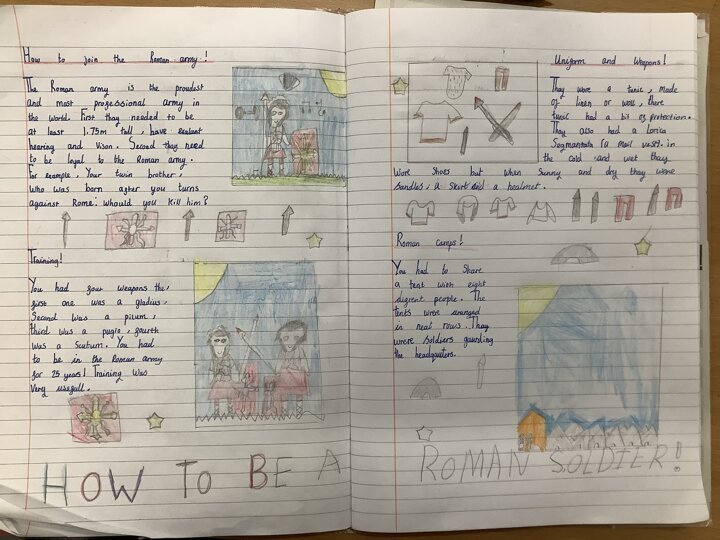 How to join the Roman army!
The Roman army is the proudest
and most prozessional army in
the world. First they needed to be
at least 1.75m tall, have
hearing and Vison. Second they need
to be loyal to the Roman army.
For example, Your twin brother,
Who was born after you turns
against Rome: Whould you kill him?
Training!
You had zour weapons the,
zirst one was a gladius,
Second was a pilum,
third was a pugio, zourth
was a Scutum. You had
to be in the Roman army
zor 25 years! Training was
Very usezull.
Uniform and Weapons!
They wore a tunic, made
of linen or woll, there
tunic had a bit oz protection.
They also had a Lorica
Segmantata (a mail vest). in
the cold and wet they
wore shoes but when sunny and dry they wore
sandles, a skirt and a healmet.
Roman camps!
You had to Share
a tent with eight
dizrent people. The
tents were aranged
in neat rows. They
were soldiers gaurding
the headquaters.
HOW TO BE A ROMAN SOLDIER!